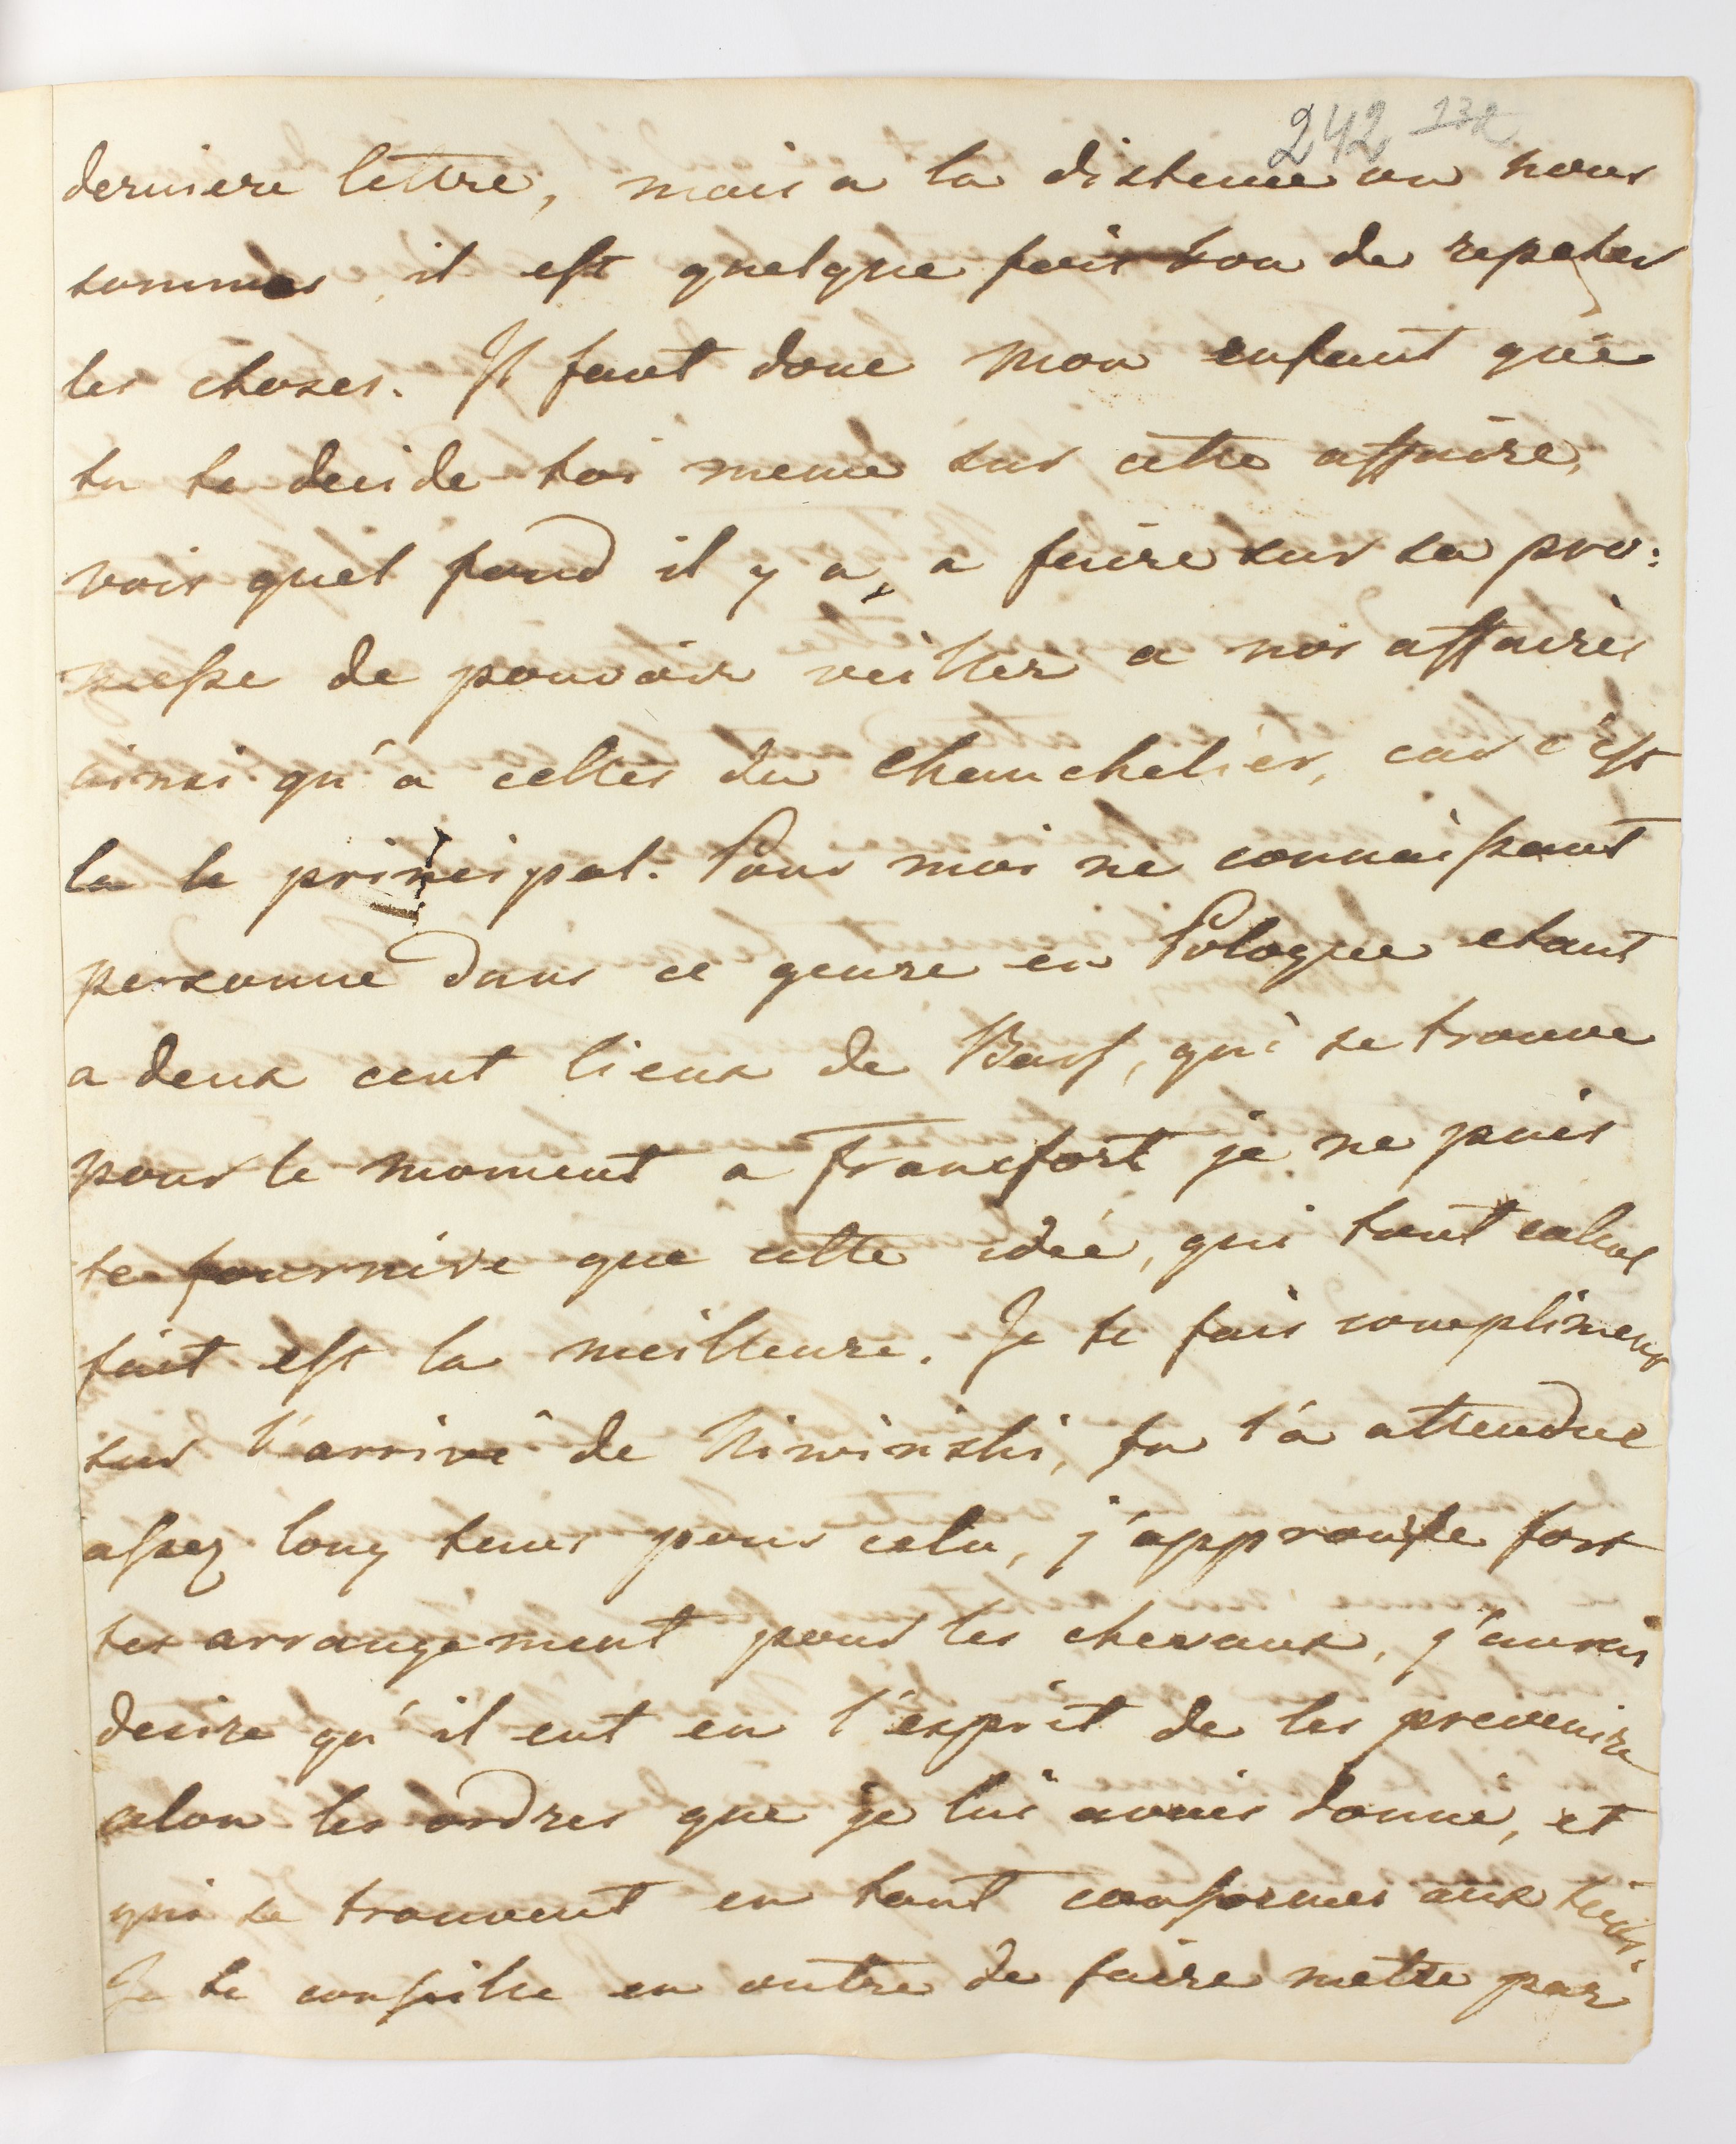 242 172
derniere lettre, mais a la distence ou nous
sommes, il est quelque fois bon de repeter
les choses. Il faut donc mon enfant que
tu te decide toi meme sur cette affaire,
vois quel fond il y a, a faire sur sa pro:
messe de pouvoir veiller a nos affaires
ainsi qu'a celles du Chanchelier, car c'est
la le principal. Pour moi ne connaissant
personne dans ce genre en Pologne etant
a deux cent lieux de , qui se trouve
pour le moment a Francfort je ne puis
te fournire que cette idée, qui tout calcul
fait est la meilleure. Je te fais compliment
sur l'arrivé de Kiwinski, tu l'a attendue
assez long tems pour cela, j'approuve fort
tes arrangement pour les chevaux, j'aurais
desire qu'il eut eu l'esprit de les prevenire
selon les ordres que je lui avais donné, et
qui se trouvent en tout conformes aux tiens.
Je te conseille en outre de faire mettre par